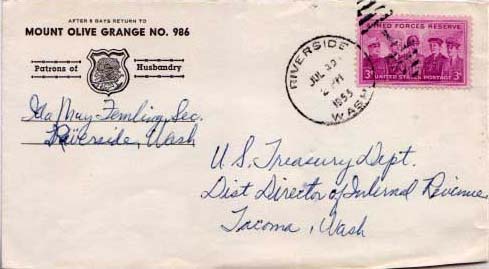 AFTER 5 DAYS RETURN TO
MOUNT OLIVE GRANGE NO. 986
Patrons of Husbandry
Ida May Femling, Sec.
Riverside, Wash
RIVERSIDE
JUL
PM
1955
WASH
ARMED FORCES RESERVE
3¢ UNITED STATES POSTAGE 3¢
U.S. Treasury Dept.
Dist Director of Internal Revenue
Tacoma, Wash